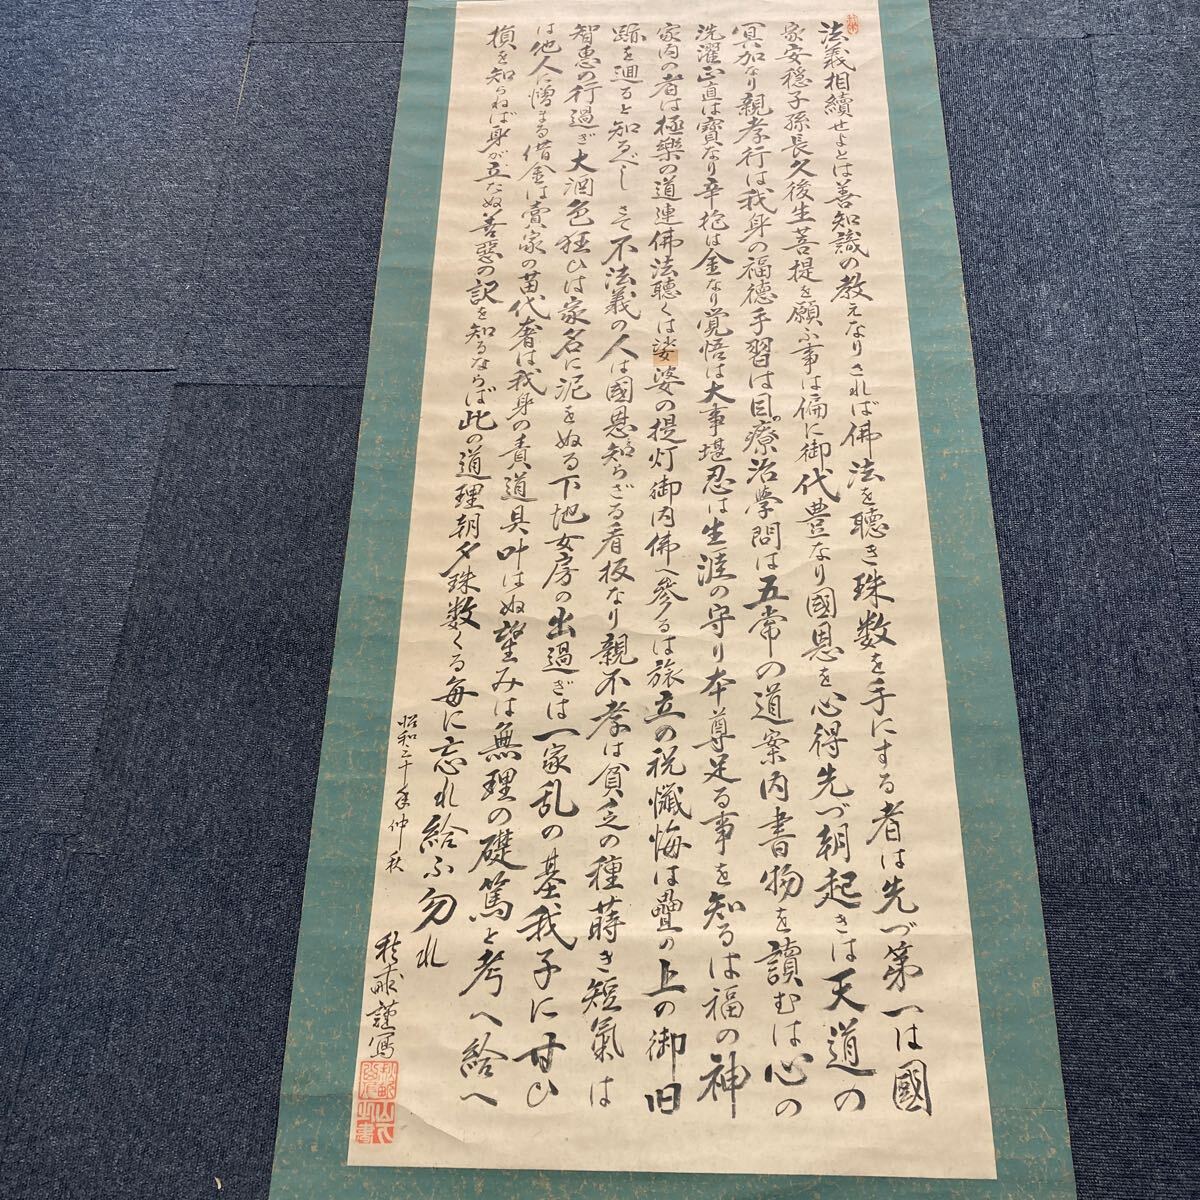 法義相續せよとは善知識の教えなりされば佛法を聴き珠数を手にする者は先づ第一は國
家安穏子孫長久後生菩提を願ふ事は偏に御代豊なり國恩を心得先づ朝起きは天道の
冥加なり親孝行は我身の福德手習は目の療治學問は五常の道案内書物を讀むは心の
洗濯正直は寳なり辛抱は金なり覚悟は大事堪忍は生涯の守り本尊足る事を知るは福の神
家内の者は極樂の道連佛法聴くは娑婆の提灯御内佛へ参るは旅立の祝懺悔は疊の上の御旧
跡を廻ると知るべしさて不法義の人は國恩知らざる看板なり親不孝は貧乏の種蒔き短氣は
智恵の行過ぎ大酒色狂ひは家名に泥をぬる下地女房の出過ぎは一家乱の基我子に甘ひ
は他人に憎まる借金は賣家の苗代奢は我身の責道具叶はぬ望みは無理の礎篤と考へ給へ
損を知らねば身が立たぬ善惡の訳を知るならば此の道理朝夕珠数くる毎に忘れ給ふ勿れ
昭和三十年仲秋
謹寫